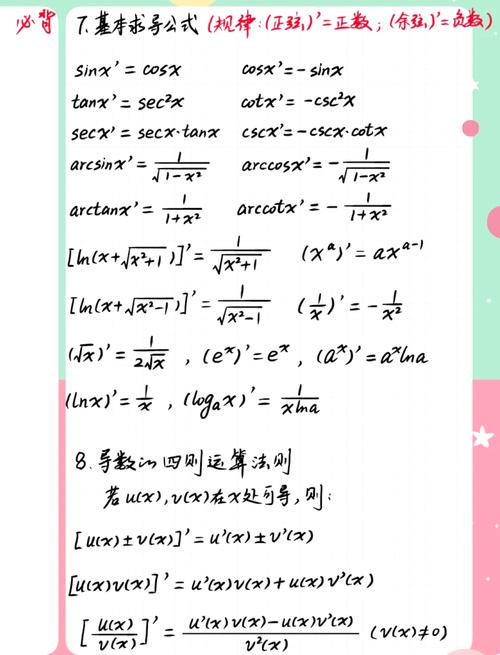 必背 7.基本求导公式 (规律:(正弦)'=正数;(余弦)'=负数)
sinx' = cosx cosx' = -sinx
tanx' = sec²x cotx' = -csc²x
secx' = secx·tanx cscx' = -cscx·cotx
arcsinx' = 1/√(1-x²) arccosx' = -1/√(1-x²)
arctanx' = 1/(1+x²) arccotx' = -1/(1+x²)
[ln(x+√(x²+1))]' = 1/√(x²+1) (xᵃ)' = axᵃ⁻¹
[ln(x+√(x²-1))]' = 1/√(x²-1) (1/x)' = -1/x²
(√x)' = 1/(2√x) , (eˣ)' = eˣ , (aˣ)' = aˣlna
(lnx)' = 1/x , (logₐx)' = 1/(xlna)
8.导数的四则运算法则
若u(x),v(x)在x处可导,则:
[u(x)±v(x)]' = u'(x)±v'(x)
[u(x)v(x)]' = u'(x)v(x)+u(x)v'(x)
[u(x)/v(x)]' = (u'(x)v(x)-u(x)v'(x))/v²(x) (v(x)≠0)